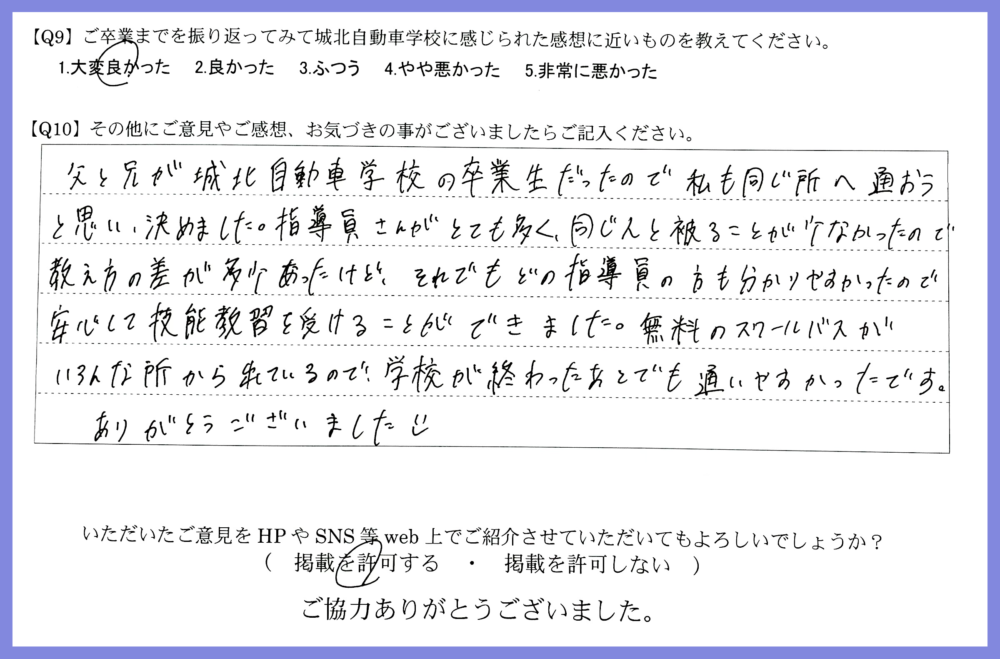 【Q9】ご卒業までを振り返ってみて城北自動車学校に感じられた感想に近いものを教えてください。
1.大変良かった　2.良かった　3.ふつう　4.やや悪かった　5.非常に悪かった
【Q10】その他にご意見やご感想、お気づきの事がございましたらご記入ください。
父と兄が城北自動車学校の卒業生だったので私も同じ所へ通おう
と思い、決めました。指導員さんがとても多く、同じ人と被ることが少なかったので
教え方の差が多少あったけど、それでもどの指導員の方も分かりやすかったので
安心して技能教習を受けることができました。無料のスクールバスが
いろんな所から出ているので、学校が終わったあとでも通いやすかったです。
ありがとうございました
いただいたご意見を HP や SNS 等 web 上でご紹介させていただいてもよろしいでしょうか？
（　掲載を許可する　・　掲載を許可しない　）
ご協力ありがとうございました。